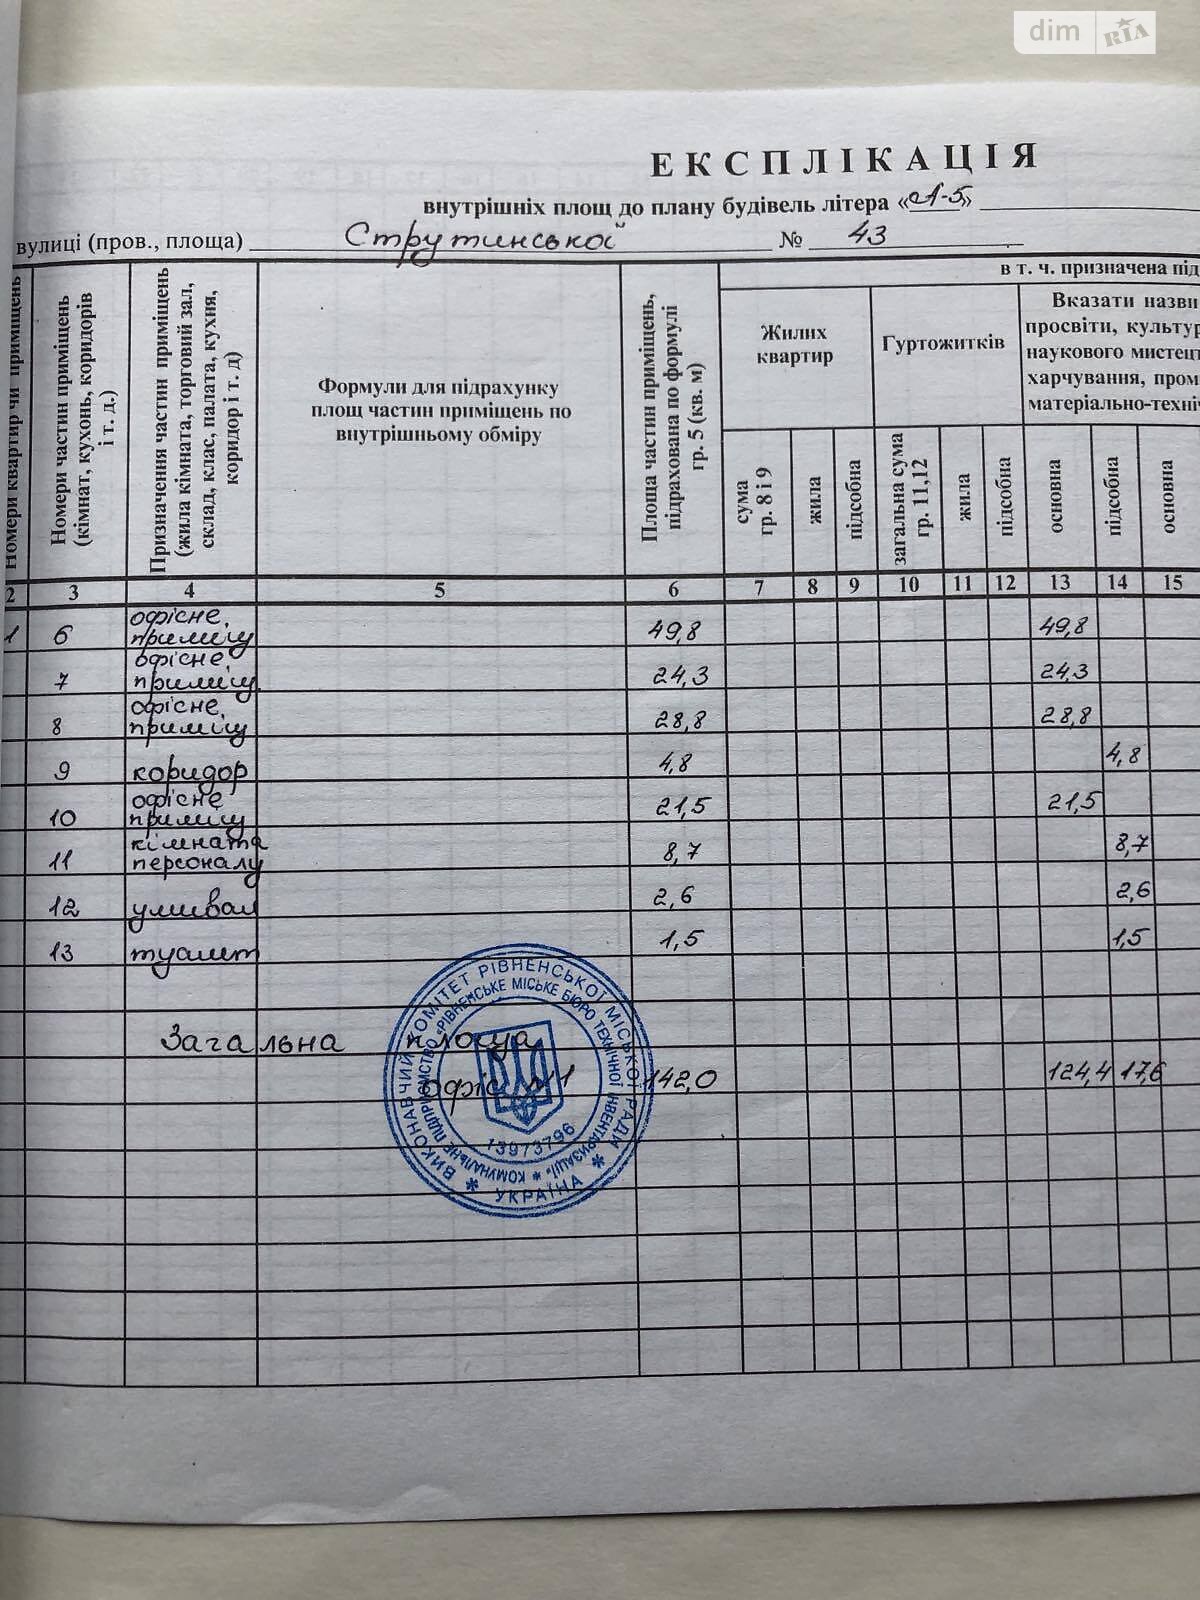 dim RIA
ЕКСПЛІКАЦІЯ
внутрішніх площ до плану будівель літера «А-5»
вулиці (пров., площа) Струтинської № 43
Номери квартир чи приміщень
Номери частин приміщень
(кімнат, кухонь, коридорів
і т. д.)
Призначення частин приміщень
(жила кімната, торговий зал,
склад, клас, палата, кухня,
коридор і т. д)
Формули для підрахунку
площ частин приміщень по
внутрішньому обміру
Площа частин приміщень,
підрахована по формулі
гр. 5 (кв. м)
в т. ч. призначена під
Жилих
квартир
Гуртожитків
Вказати назви
просвіти, культур
наукового мистецт
харчування, пром
матеріально-техніч
сума
гр. 8 і 9
жила
підсобна
загальна сума
гр. 11,12
жила
підсобна
основна
підсобна
основна
2 3 4 5 6 7 8 9 10 11 12 13 14 15
1 6 офісне приміщ 49,8 49,8
7 офісне приміщ 24,3 24,3
8 офісне приміщ 28,8 28,8
9 коридор 4,8 4,8
10 офісне приміщ 21,5 21,5
11 кімната персоналу 8,7 8,7
12 умивал 2,6 2,6
13 туалет 1,5 1,5
Загальна площа
офіс №1 142,0 124,4 17,6
ВИКОНАВЧИЙ КОМІТЕТ РІВНЕНСЬКОЇ МІСЬКОЇ РАДИ * УКРАЇНА *
КОМУНАЛЬНЕ ПІДПРИЄМСТВО «РІВНЕНСЬКЕ МІСЬКЕ БЮРО ТЕХНІЧНОЇ ІНВЕНТАРИЗАЦІЇ» *
13973796